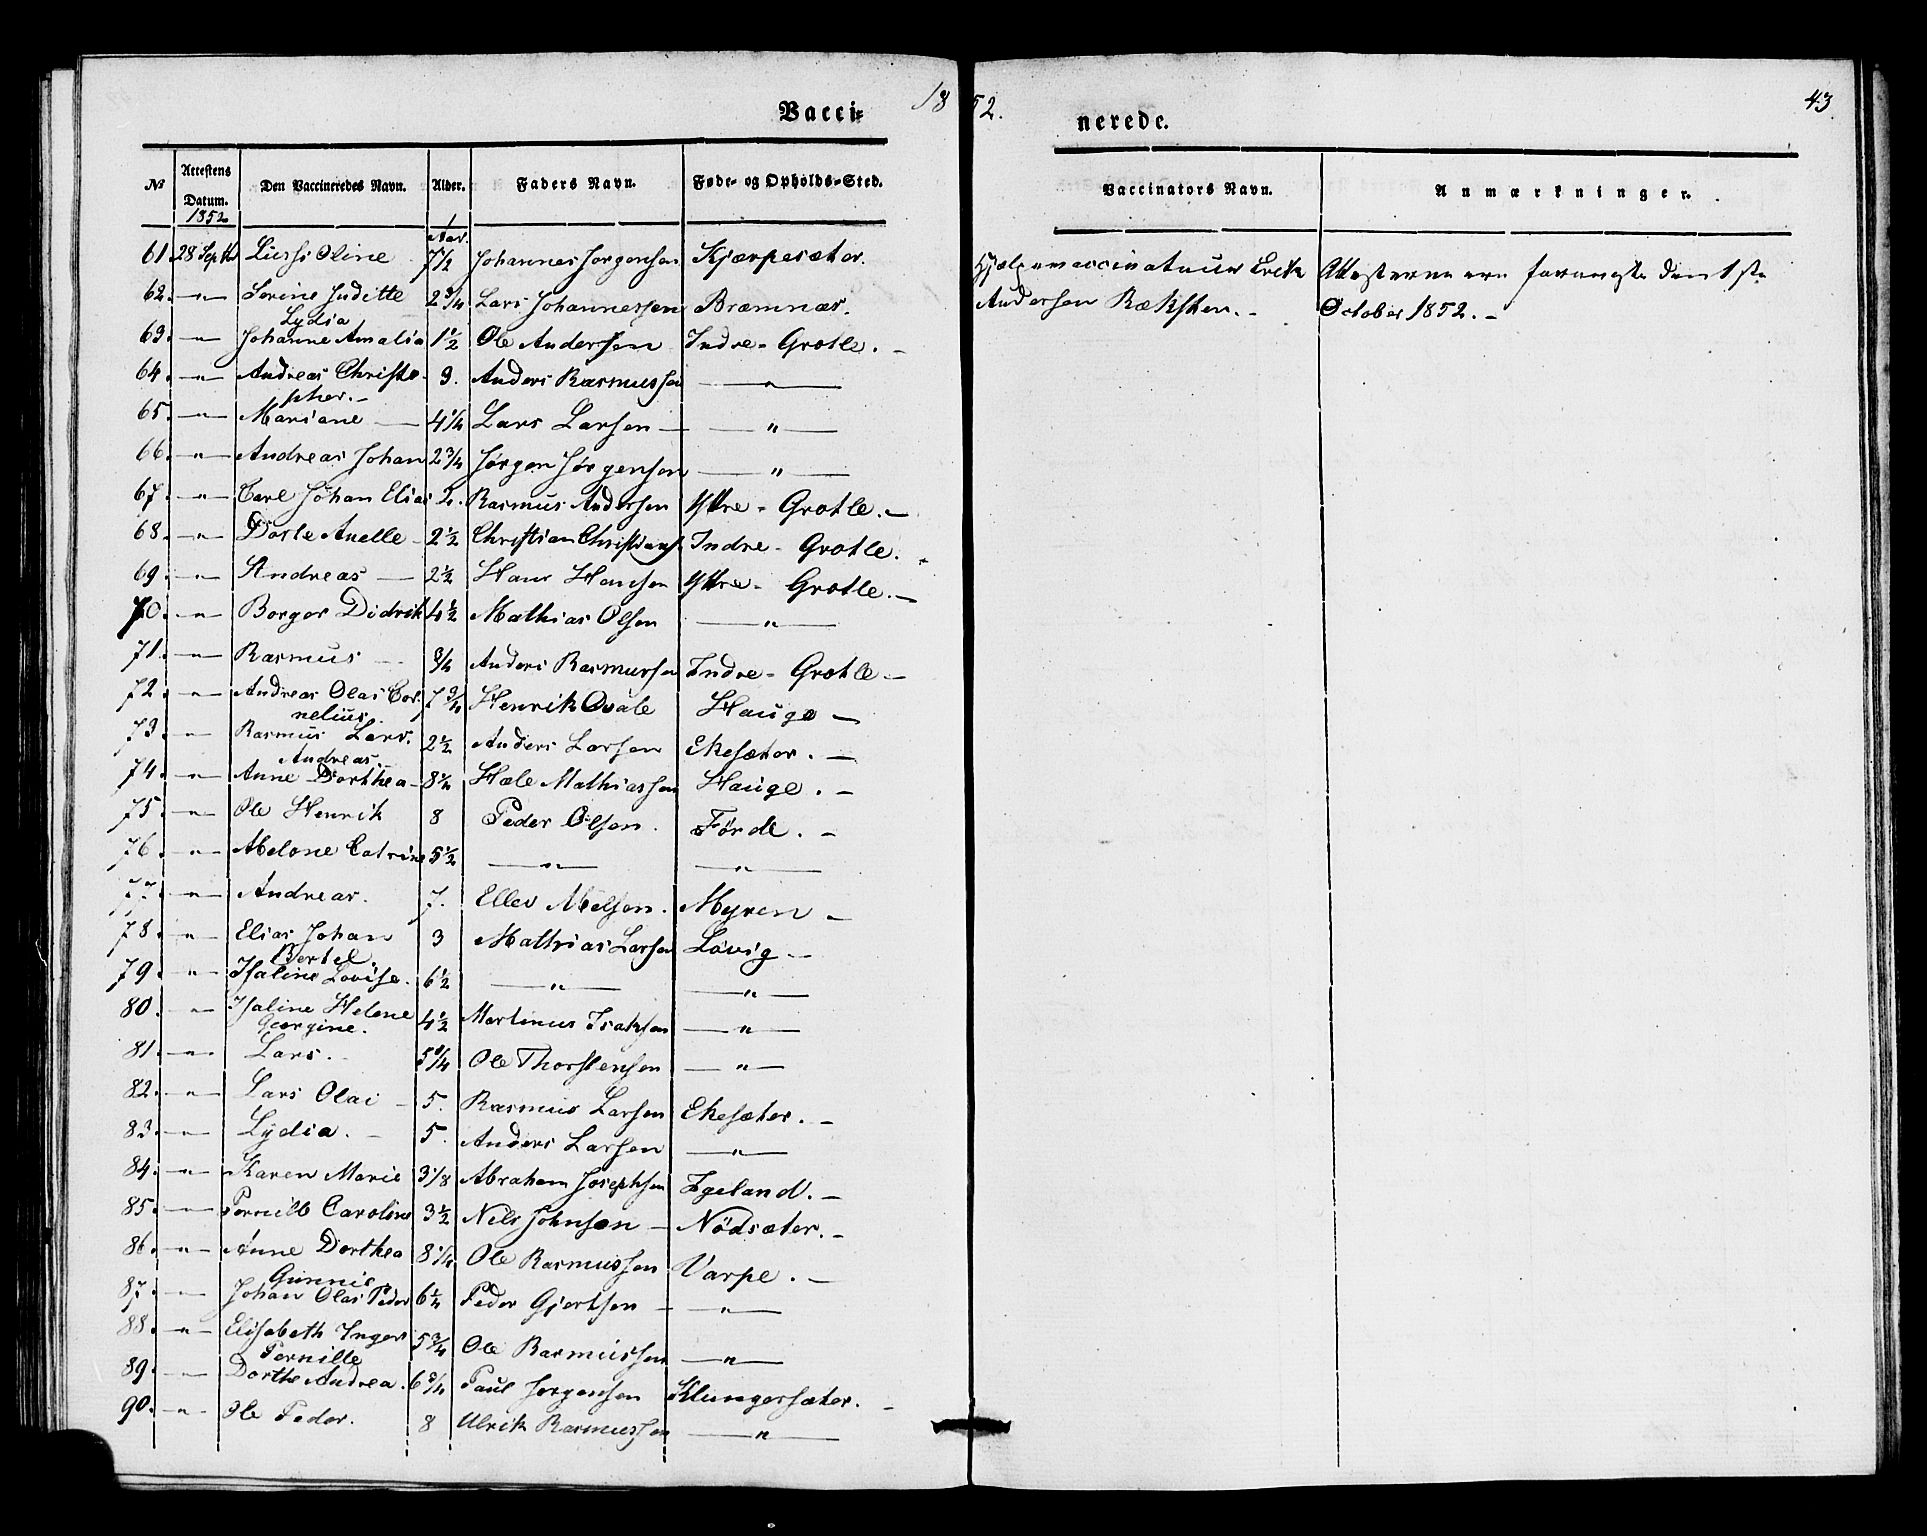 Vacci- 18
52. nerede. 43
№ Attestens Datum. 1852 Den Vaccineredes Navn. Alder. Faders Navn. Føde- og Opholds-Sted. Vaccinators Navn. Anmærkninger.
Aar.
61. 28 Septbr Oline 7½ Johannes Jørgensen Kjærpesæter. Hjelpevaccinateur Erik Attesterne ere den 1ste
62. —"— Serine Juditte 2¾ Lars Johannessen Bræmnæs. Andersen Ræksten. - October 1852. -
Lydia
63. —"— Johanne Amalia 1½ Ole Andersen Indre - Grotle. -
64. —"— Andreas Christo- 9. Anders Rasmussen —"—
pher. -
65. —"— Mariane — 4¼ Lars Larsen — —"—
66. —"— Andreas Johan 2¾ Jørgen Jørgensen —"—
67. —"— Carl Johan Elias 2. Rasmus Andersen Yttre - Grotle. -
68. —"— Dorte Anelle - 2½ Christian Christians. Indre - Grotle.
69. —"— Andreas — 2½ Hans Hansen Yttre - Grotle. -
70. —"— Borger Didrik 4½ Mathias Olsen —"—
71. —"— Rasmus — ¾ Anders Rasmussen Indre - Grotle -
72. —"— Andreas Olai Cor- 7¾ Henrik Hauge -
nelius.
73. —"— Rasmus Lars. 2½ Anders Larsen Ekesæter. -
Andreas. -
74. —"— Anne Dorthea - 8½ Hale Mathiassen Hauge. -
75. —"— Ole Henrik 8 Peder Olsen. Førde. -
76. —"— Abelone Catrine 5½ —"— —"—
77. —"— Andreas. 7. Ellev Abelsen. Myren -
78. —"— Elias Johan 3 Mathias Larsen Løvig -
Bertel.
79. —"— Isaline Lovise. 6½ —"— —"—
80. —"— Isaline Helene 4½ Martinus Isaksen —"—
Georgine.
81. —"— Lars. - 5¾ Ole Thorstensen —"—
82. —"— Lars Olai - 5. Rasmus Larsen Ekesæter. -
83. —"— Lydia. - 5. Anders Larsen —"—
84. —"— Karen Marie 3⅛ Abraham Josephsen Igeland. -
85. —"— Pernille Caroline 3½ Nels Johnsen - Nødsæter. -
86. —"— Anne Dorthea 8¼ Ole Rasmussen Varpe. -
Gunnie.
87. —"— Johan Olai Peder 6¼ Peder Gjertsen - —"—
88. —"— Elisabeth Inger 5¾ Ole Rasmussen —"—
Pernille
89. —"— Dorthe Andrea. 6¾ Paul Jørgensen Klungersæter. -
90. —"— Ole Peder. 8 Ulrik Rasmussen —"—